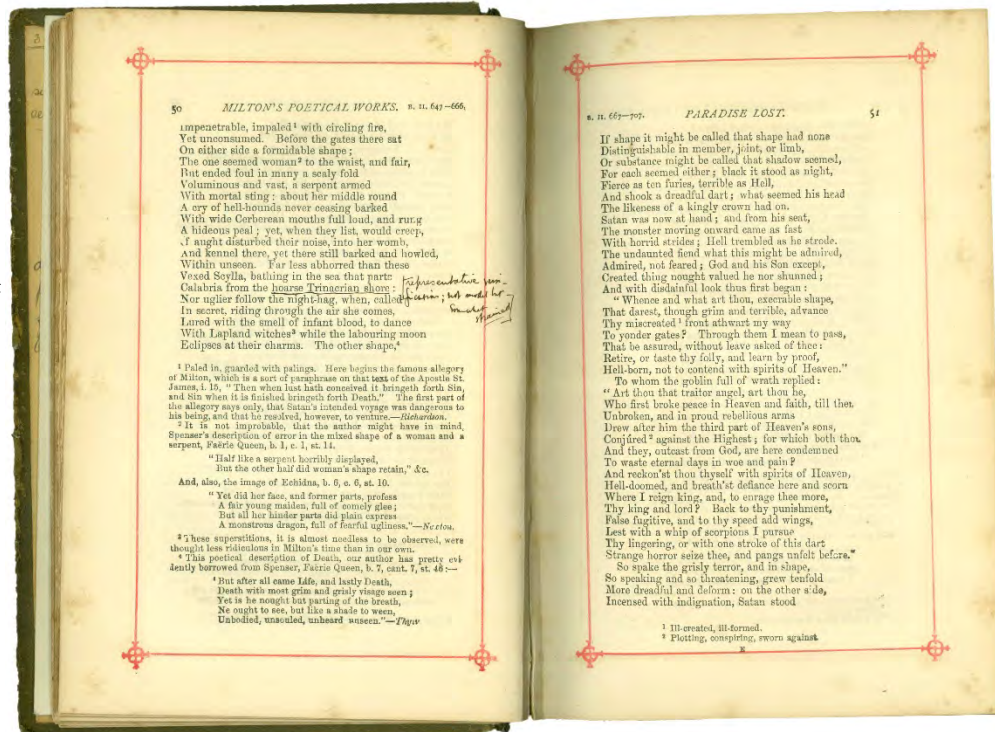 50 MILTON'S POETICAL WORKS. B. II. 647-666,
impenetrable, impaled¹ with circling fire,
Yet unconsumed. Before the gates there sat
On either side a formidable shape;
The one seemed woman² to the waist, and fair,
But ended foul in many a scaly fold
Voluminous and vast, a serpent armed
With mortal sting: about her middle round
A cry of hell-hounds never ceasing barked
With wide Cerberean mouths full loud, and rung
A hideous peal; yet, when they list, would creep,
If aught disturbed their noise, into her womb,
And kennel there, yet there still barked and howled,
Within unseen. Far less abhorred than these
Vexed Scylla, bathing in the sea that parts
Calabria from the hoarse Trinacrian shore:
Nor uglier follow the night-hag, when, called
In secret, riding through the air she comes,
Lured with the smell of infant blood, to dance
With Lapland witches³ while the labouring moon
Eclipses at their charms. The other shape,⁴
representative
; not
¹ Paled in, guarded with palings. Here begins the famous allegory
of Milton, which is a sort of paraphrase on that text of the Apostle St.
James, i. 15, "Then when lust hath conceived it bringeth forth Sin,
and Sin when it is finished bringeth forth Death." The first part of
the allegory says only, that Satan's intended voyage was dangerous to
his being, and that he resolved, however, to venture.—Richardson.
² It is not improbable, that the author might have in mind,
Spenser's description of error in the mixed shape of a woman and a
serpent, Faërie Queen, b. 1, c. 1, st. 14.
"Half like a serpent horribly displayed,
But the other half did woman's shape retain," &c.
And, also, the image of Echidna, b. 6, c. 6, st. 10.
"Yet did her face, and former parts, profess
A fair young maiden, full of comely glee;
But all her hinder parts did plain express
A monstrous dragon, full of fearful ugliness."—Newton.
³ These superstitions, it is almost needless to be observed, were
thought less ridiculous in Milton's time than in our own.
⁴ This poetical description of Death, our author has pretty evi-
dently borrowed from Spenser, Faërie Queen, b. 7, cant. 7, st. 46:—
"But after all came Life, and lastly Death,
Death with most grim and grisly visage seen;
Yet is he nought but parting of the breath,
Ne ought to see, but like a shade to ween,
Unbodied, unsouled, unheard unseen."—Thyer
B. II. 667-707. PARADISE LOST. 51
If shape it might be called that shape had none
Distinguishable in member, joint, or limb,
Or substance might be called that shadow seemed,
For each seemed either; black it stood as night,
Fierce as ten furies, terrible as Hell,
And shook a dreadful dart; what seemed his head
The likeness of a kingly crown had on.
Satan was now at hand; and from his seat,
The monster moving onward came as fast
With horrid strides; Hell trembled as he strode.
The undaunted fiend what this might be admired,
Admired, not feared; God and his Son except,
Created thing nought valued he nor shunned;
And with disdainful look thus first began:
"Whence and what art thou, execrable shape,
That darest, though grim and terrible, advance
Thy miscreated¹ front athwart my way
To yonder gates? Through them I mean to pass,
That be assured, without leave asked of thee:
Retire, or taste thy folly, and learn by proof,
Hell-born, not to contend with spirits of Heaven."
To whom the goblin full of wrath replied:
"Art thou that traitor angel, art thou he,
Who first broke peace in Heaven and faith, till then
Unbroken, and in proud rebellious arms
Drew after him the third part of Heaven's sons,
Conjúred² against the Highest; for which both thou
And they, outcast from God, are here condemned
To waste eternal days in woe and pain?
And reckon'st thou thyself with spirits of Heaven,
Hell-doomed, and breath'st defiance here and scorn
Where I reign king, and, to enrage thee more,
Thy king and lord? Back to thy punishment,
False fugitive, and to thy speed add wings,
Lest with a whip of scorpions I pursue
Thy lingering, or with one stroke of this dart
Strange horror seize thee, and pangs unfelt before."
So spake the grisly terror, and in shape,
So speaking and so threatening, grew tenfold
More dreadful and deform: on the other side,
Incensed with indignation, Satan stood
¹ Ill-created, ill-formed.
² Plotting, conspiring, sworn against.
E